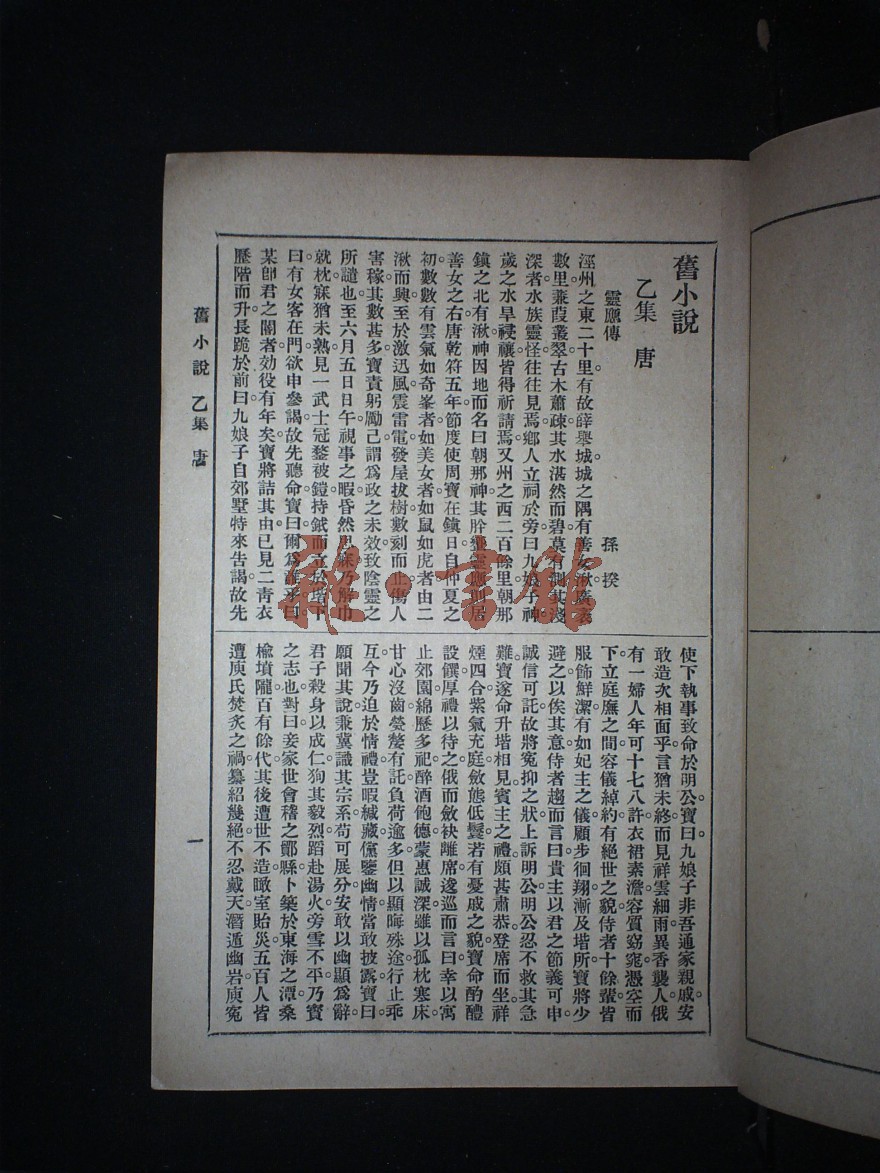 舊小說
乙集 唐
靈應傳
孫揆
涇州之東二十里。有故薛舉城。城之隅有善女湫。廣袤
數里。蒹葭叢翠。古木蕭疎。其水湛然而碧。莫有測其淺
深者。水族靈怪。往往見焉。鄉人立祠於旁。曰九娘子神。
歲之水旱祲禳。皆得祈請焉。又州之西二百餘里。朝那
鎮之北有湫神。因地而名曰朝那神。其肸蠁靈應。則居
善女之右。唐乾符五年。節度使周寶在鎮日。自仲夏之
初。數數有雲氣。如奇峯者。如美女者。如鼠如虎者。由二
湫而興。至於激迅風。震雷電。發屋拔樹。數刻而止。傷人
害稼。其數甚多。寶責躬勵己。謂爲政之未效。致陰靈之
所譴也。至六月五日。日午視事之暇。昏然思寐。乃解巾
就枕。寐猶未熟。見一武士冠鍪被鎧。持鉞而立於堦下
曰。有女客在門。欲申參謁。故先聽命。寶曰。爾爲誰乎。曰
某卽君之閽者。効役有年矣。寶將詰其由。已見二青衣
歷階而升。長跪於前曰。九娘子自郊墅特來告謁。故先
使下執事致命於明公。寶曰。九娘子非吾通家親戚。安
敢造次相面乎。言猶未終。而見祥雲細雨。異香襲人。俄
有一婦人年可十七八許。衣裙素澹。容質窈窕。憑空而
下。立庭廡之間。容儀綽約。有絕世之貌。侍者十餘輩。皆
服飾鮮潔。有如妃主之儀。顧步徊翔。漸及堦所。寶將少
避之。以俟其意。侍者趨而言曰。貴主以君之節義可申。
誠信可託。故將寃抑之狀。上訴明公。明公忍不救其急
難。寶遂命升堦相見。賓主之禮。頗甚肅恭。登席而坐。祥
煙四合。紫氣充庭。斂態低鬟。若有憂戚之貌。寶命酌醴
設饌。厚禮以待之。俄而斂袂離席。逡巡而言曰。幸以寓
止郊園。綿歷多祀。醉酒飽德。蒙惠誠深。雖以孤枕寒床。
甘心沒齒。煢嫠有託。負荷逾多。但以顯晦殊途。行止乖
互。今乃迫於情禮。豈暇緘藏。儻鑒幽情。當敢披露。寶曰。
願聞其說。兼冀識其宗系。苟可展分。安敢以幽顯爲辭
君子殺身以成仁。狥其毅烈。蹈赴湯火。旁雪不平。乃寶
之志也。對曰。妾家世會稽之鄮縣。卜築於東海之潭。桑
楡墳隴。百有餘代。其後遭世不造。瞰室貽災。五百人皆
遭庾氏焚炙之禍。纂紹幾絕。不忍戴天。潛遁幽岩。庾寃
舊小說 乙集 唐
一
雜·書館